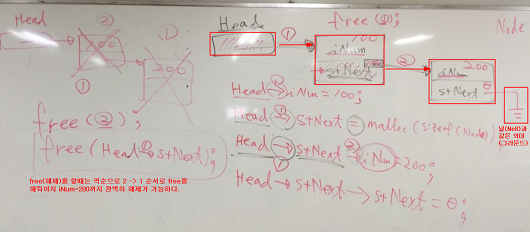 Head
②
100
①
200
①
free(②);
free(Head→stNext);
free(해제)를 할때는 역순으로 2 -> 1 순서로 free를
해줘야지 iNum=200까지 완벽히 해제가 가능하다.
Head
①
free(①);
Node
100
iNum
stNext
②
200
iNum
stNext
널(Null)과
같은 의미
(그라운드)
Head→iNum=100;
Head→stNext=malloc(sizeof(Node));
Head→stNext→iNum=200;
①
Head→stNext→stNext=0;